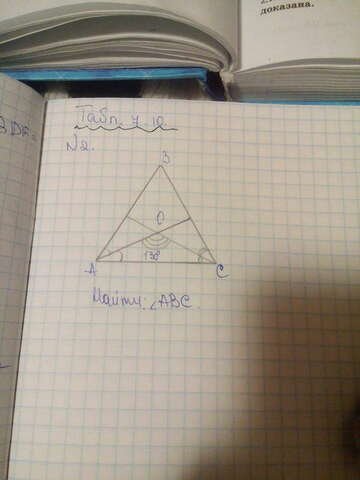 доказана.
Табл. 7.10.
N2.
B
O
130°
A
C
Найти: ∠ABC.